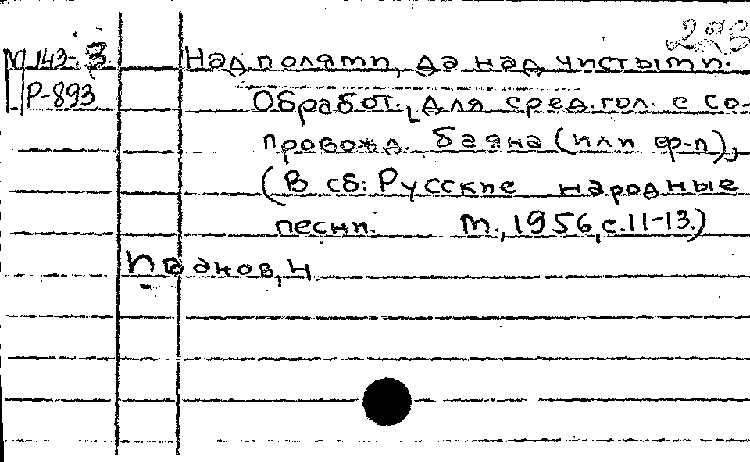 293
М 143-3 Над полями, да над чистыми.
Р-893 Обработ. [для сред. гол. с со-
провожд. баяна (или ф-п),
(В сб: Русские народные
песни. М., 1956, с. 11-13.)
Иванов, Н.